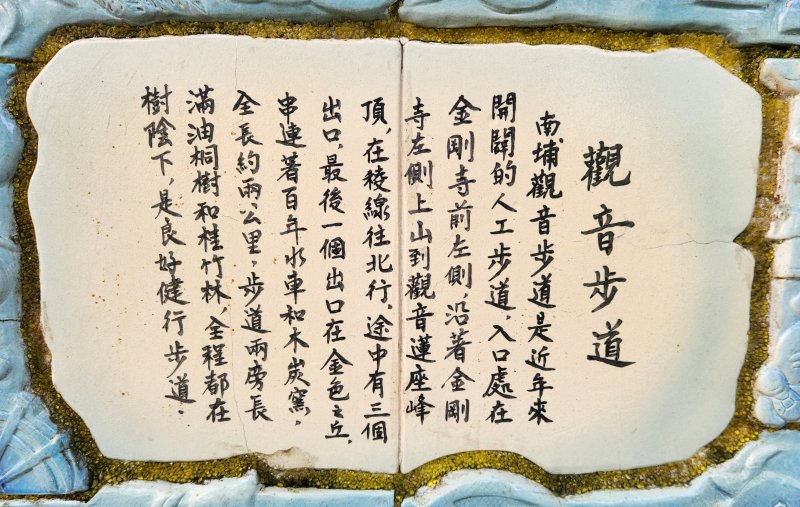 觀音步道
南埔觀音步道是近年來
開闢的人工步道，入口處在
金剛寺前左側，沿著金剛
寺左側上山到觀音蓮座峰
頂，在稜線往北行，途中有三個
出口，最後一個出口在金色之丘，
串連著百年水車和木炭窯。
全長約兩公里，步道兩旁長
滿油桐樹和桂竹林，全程都在
樹陰下，是良好健行步道。